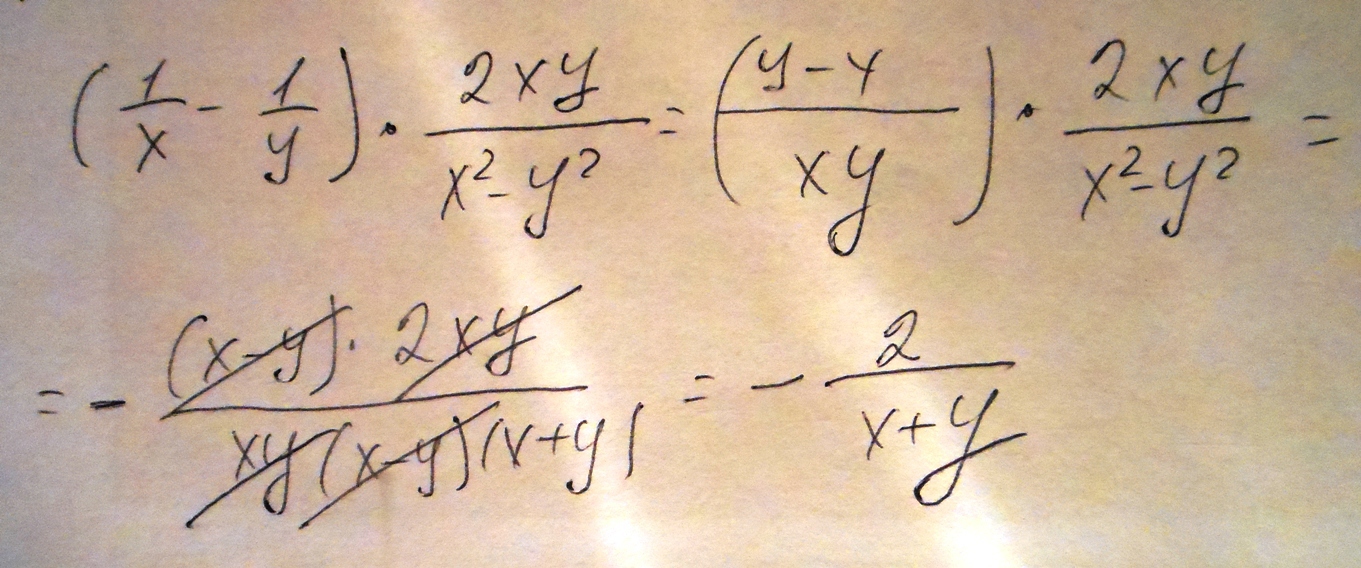 (1/x - 1/y) · 2xy/(x²-y²) = ((y-x)/(xy)) · 2xy/(x²-y²) =
= - ((x-y) · 2xy)/(xy(x-y)(x+y)) = - 2/(x+y)